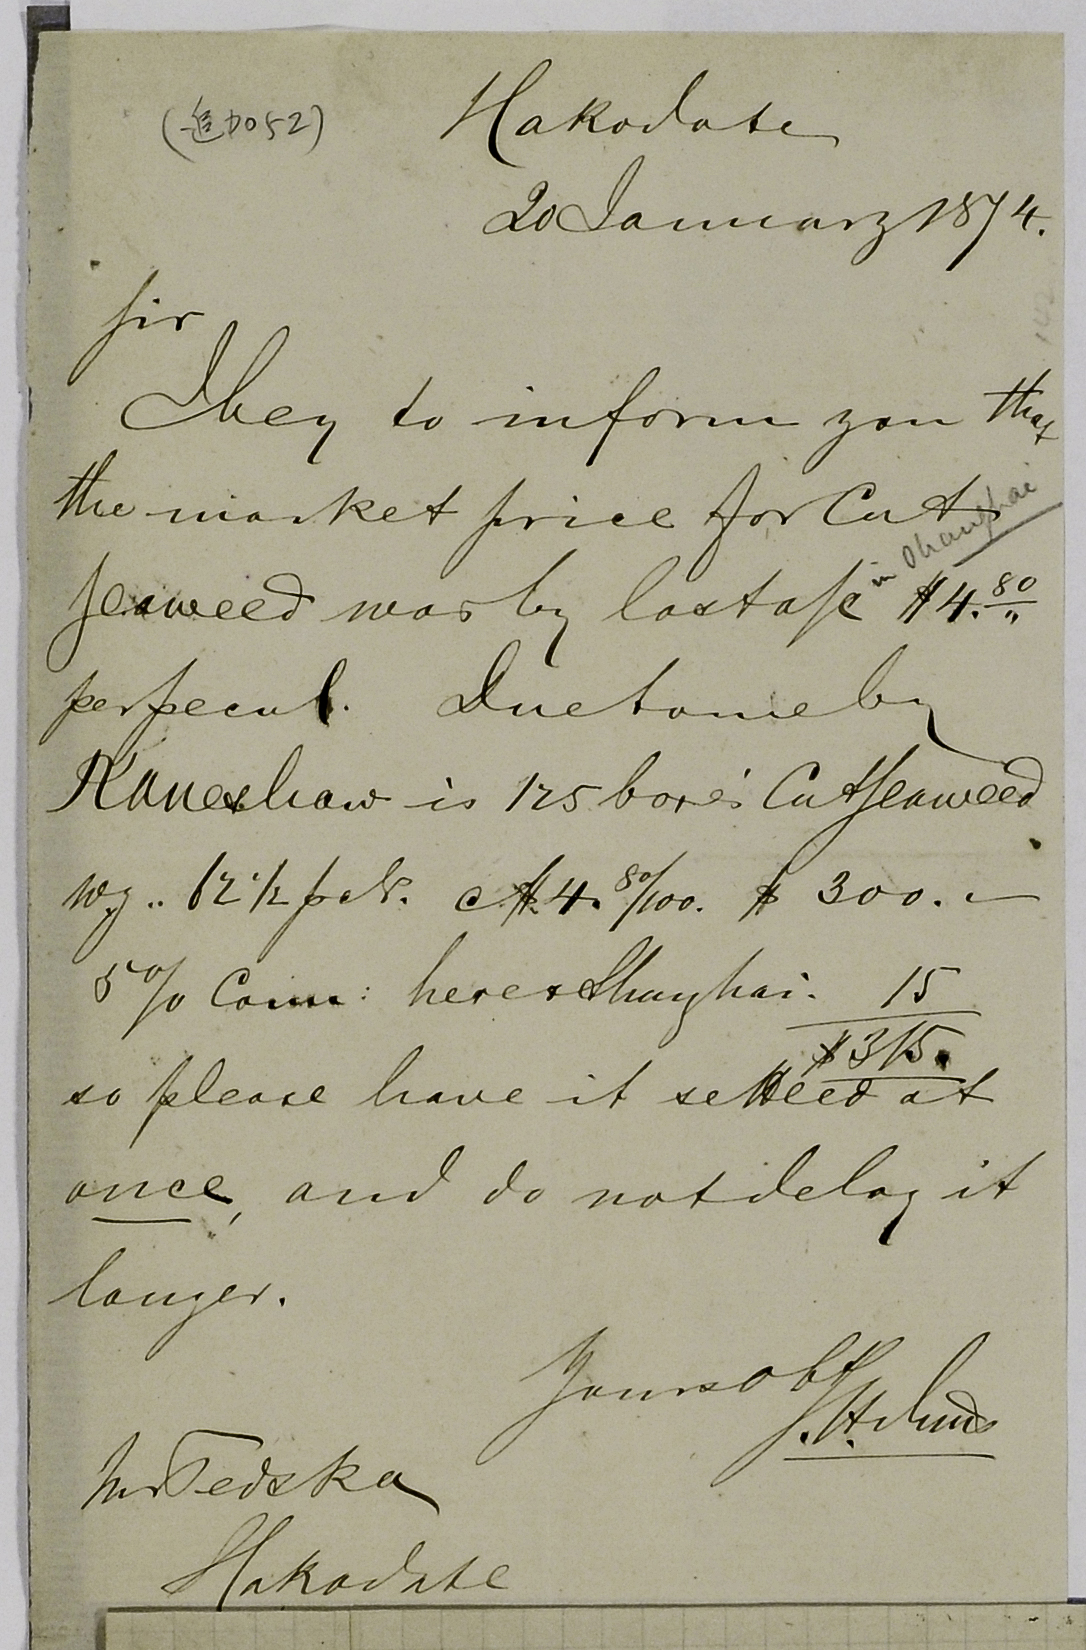 (追加052)
Hakodate
20 January 1874.
Sir
I beg to inform you that
the market price for Cut
in Shanghai
Seaweed was by last ase $4.80
per pecul. Due to me by
Kaneshaw is 125 boxes Cut Seaweed
wg.. 62 1/2 pcls. @ $4. 80/100. $ 300. —
5% Com: here & Shanghai. 15
$315.
so please have it settled at
once, and do not delay it
longer.
Yours obt
J. H.
Mr Tedska
Hakodate